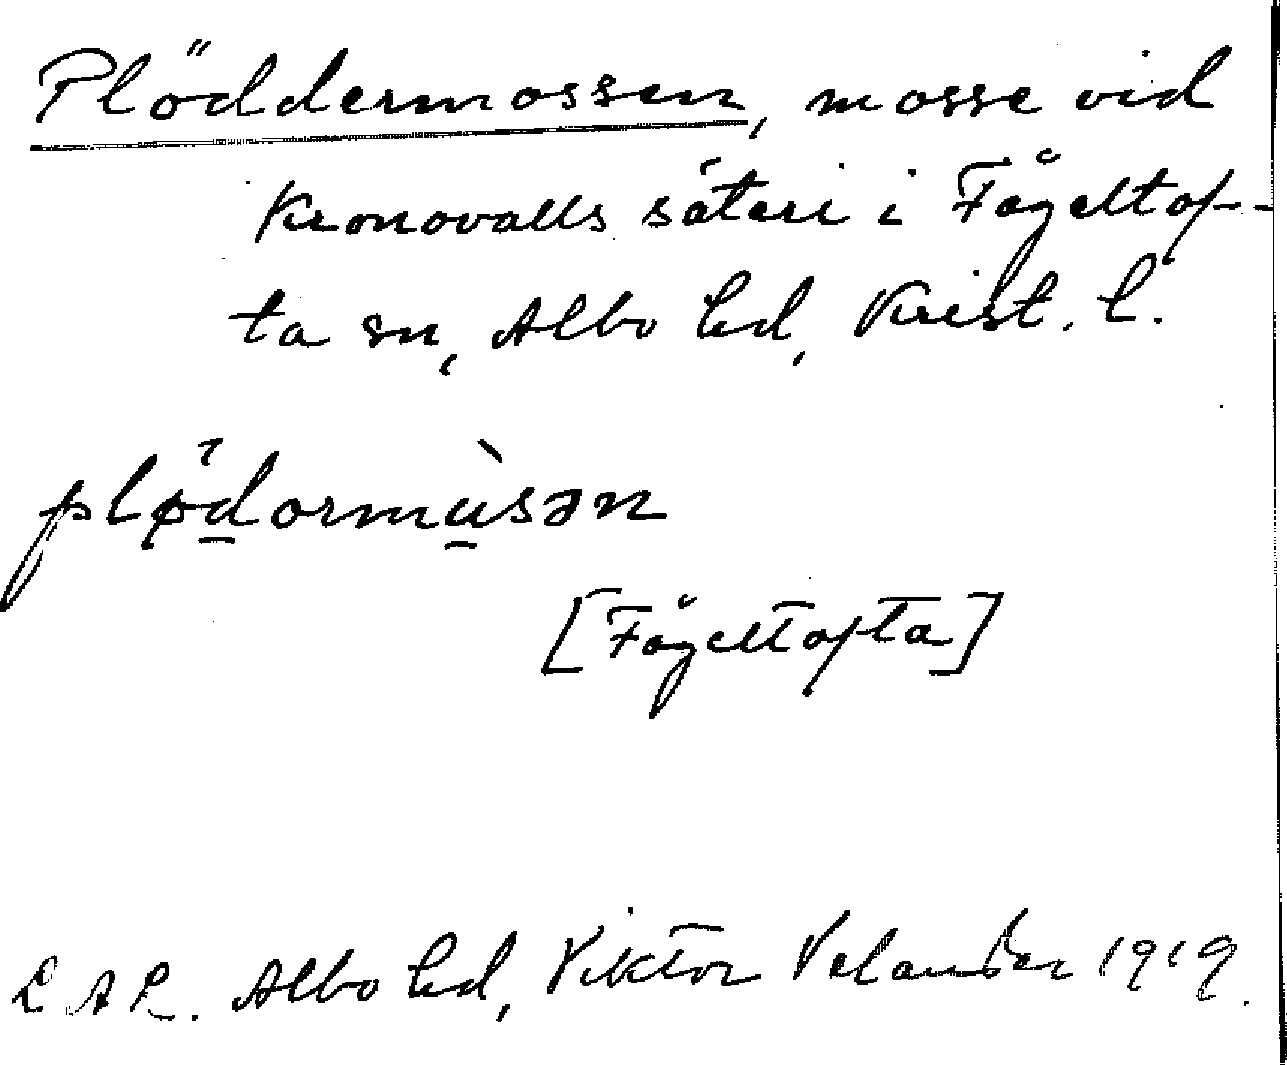 Plöddermossen, mosse vid
Kronovalls säteri i Fågeltof-
ta sn, Albo hd, Krist. l.
plø̀dormùsən
[Fågeltofta]
L A L. Albo hd, Viktor Velander 1919.